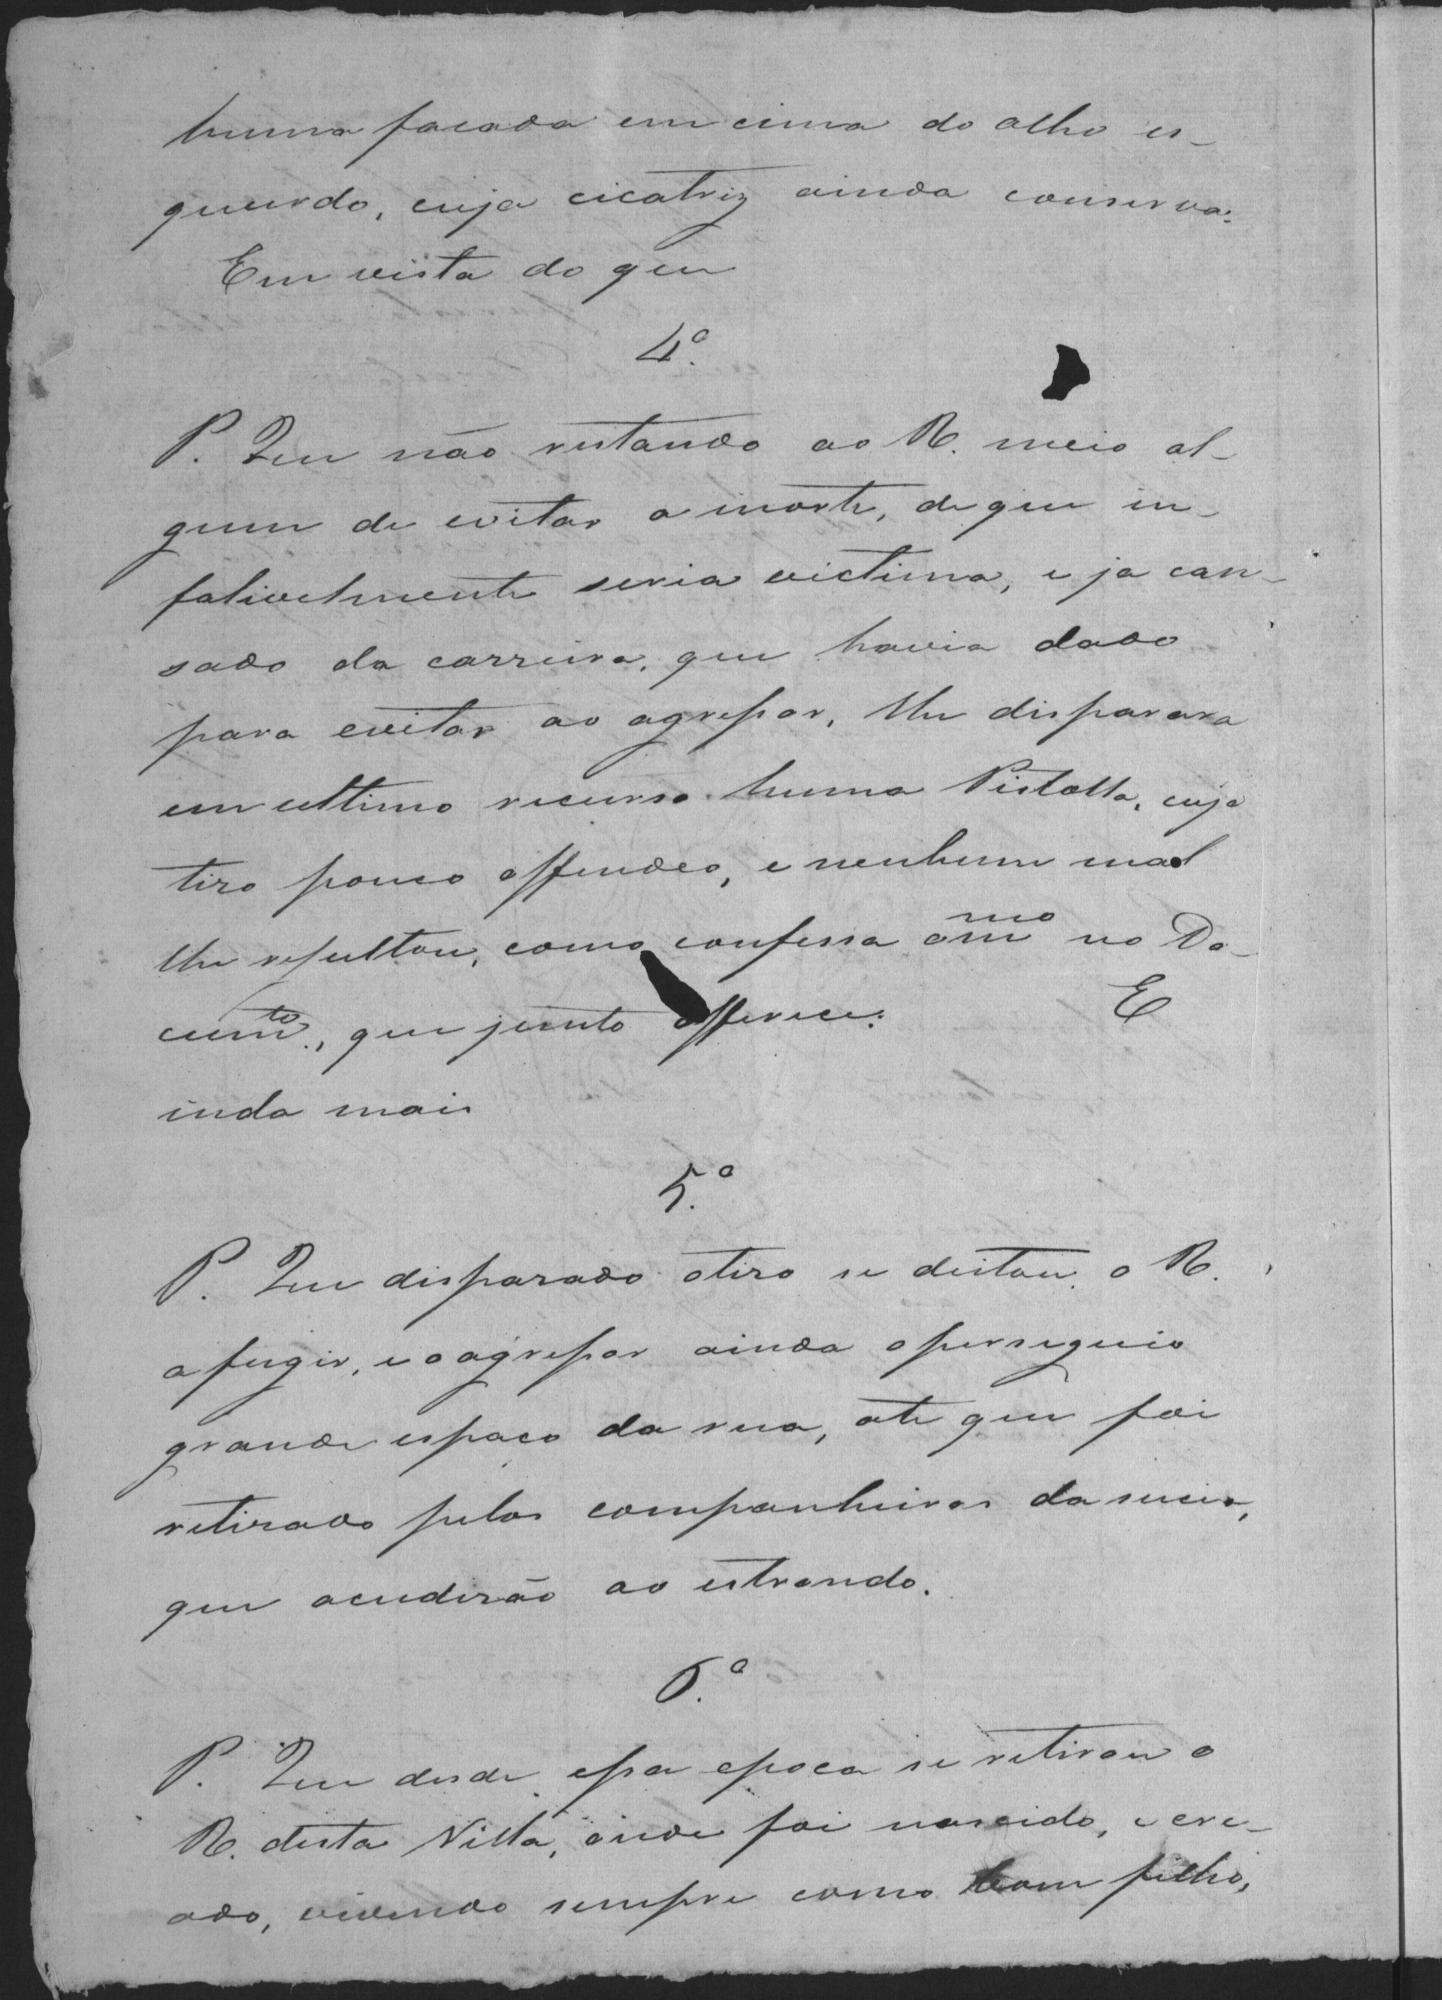 huma facada em cima do olho es-
querdo, cuja cicatriz ainda conserva:
Em vista do que
4.º
P. Que não restando ao R. meio al-
gum de evitar a morte, de que in-
falivelmente seria victima, e ja can-
sado da carreira, que havia dado
para evitar ao agressor, lhe disparara
em ultimo recurso huma Pistolla, cujo
tiro pouco offendeo, e nenhum mal
lhe resultou, como confessa o mmo no Do-
cumto., que junto offerece: E
inda mais
5.º
P. Que disparado o tiro se deitou o R.
a fugir, e o agressor ainda o perseguio
grande espaço da rua, ate que foi
retirado pelos companheiros da sucia,
que acudirão ao estrondo.
6.º
P. Que desde essa epoca se retirou o
R. desta Villa, onde foi nascido, e cre-
ado, vivendo sempre como bom filho,